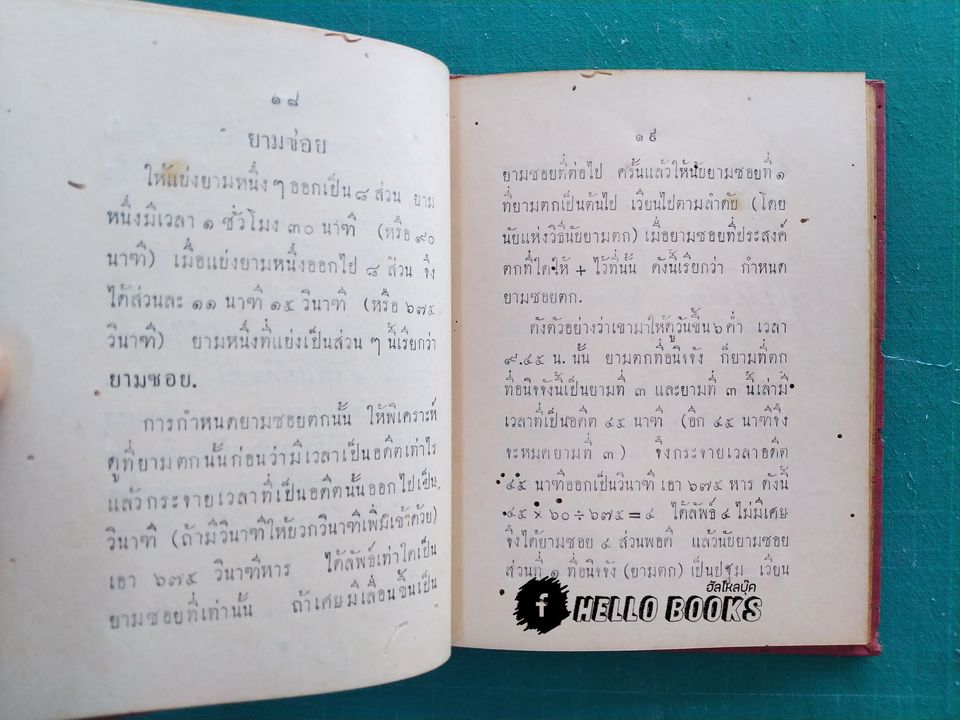 ๑๘
ยามซอย
ให้แบ่งยามหนึ่ง ๆ ออกเป็น ๘ ส่วน ยาม
หนึ่งมีเวลา ๑ ชั่วโมง ๓๐ นาฑี (หรือ ๙๐
นาฑี) เมื่อแบ่งยามหนึ่งออกไป ๘ ส่วน จึง
ได้ส่วนละ ๑๑ นาฑี ๑๕ วินาฑี (หรือ ๖๗๕
วินาฑี) ยามหนึ่งที่แบ่งเป็นส่วน ๆ นี้เรียกว่า
ยามซอย.
การกำหนดยามซอยตกนั้น ให้พิเคราะห์
ดูที่ยามตกนั้นก่อนว่ามีเวลาเป็นอดีตเท่าไร
แล้วกระจายเวลาที่เป็นอดีตนั้นออกไปเป็น
วินาฑี (ถ้ามีวินาฑีให้บวกวินาฑีเพิ่มเข้าด้วย)
เอา ๖๗๕ วินาฑีหาร ได้ลัพธ์เท่าใดเป็น
ยามซอยที่เท่านั้น ถ้าเศษมีเลื่อนขึ้นเป็น
๑๙
ยามซอยที่ต่อไป ครั้นแล้วให้นับยามซอยที่ ๑
ที่ยามตกเป็นต้นไป เวียนไปตามลำดับ (โดย
นัยแห่งวิธีนับยามตก) เมื่อยามซอยที่ประสงค์
ตกที่ใดให้ + ไว้ที่นั้น ดังนี้เรียกว่า กำหนด
ยามซอยตก.
ดังตัวอย่างว่าเขามาให้ดูวันขึ้น ๖ ค่ำ เวลา
๙.๔๕ น. นั้น ยามตกที่อนิจจัง ก็ยามที่ตก
ที่อนิจจังนี้เป็นยามที่ ๓ และยามที่ ๓ นี้เล่ามี
เวลาที่เป็นอดีต ๔๕ นาฑี (อีก ๔๕ นาฑีจึง
จะหมดยามที่ ๓) จึงกระจายเวลาอดีต
๔๕ นาฑีออกเป็นวินาฑี เอา ๖๗๕ หาร ดังนี้
๔๕ × ๖๐ ÷ ๖๗๕ = ๔ ได้ลัพธ์ ๔ ไม่มีเศษ
จึงได้ยามซอย ๔ ส่วนพอดี แล้วนับยามซอย
ส่วนที่ ๑ ที่อนิจจัง (ยามตก) เป็นปฐม เวียน
ฮัลโหลบุ๊ค
f HELLO BOOKS